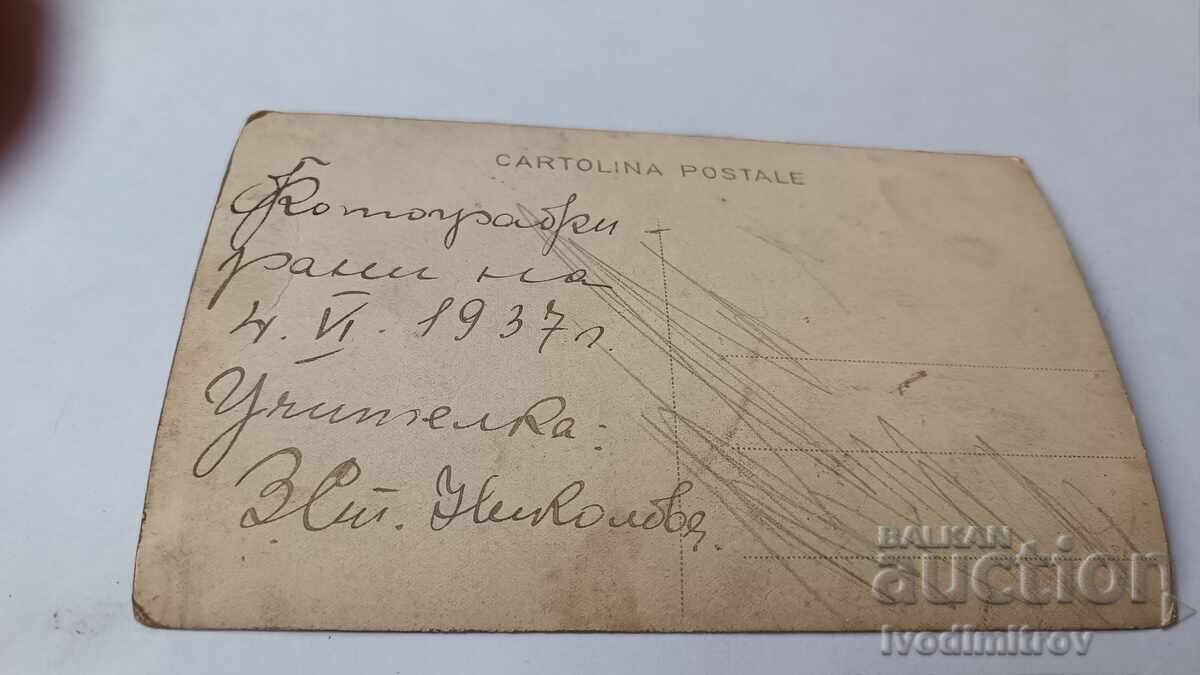 CARTOLINA POSTALE
Фотографи-
рани на
4. VI. 1937 г.
Учителка:
З. Ст. Николова.
BALKAN
auction
Ivodimitrov